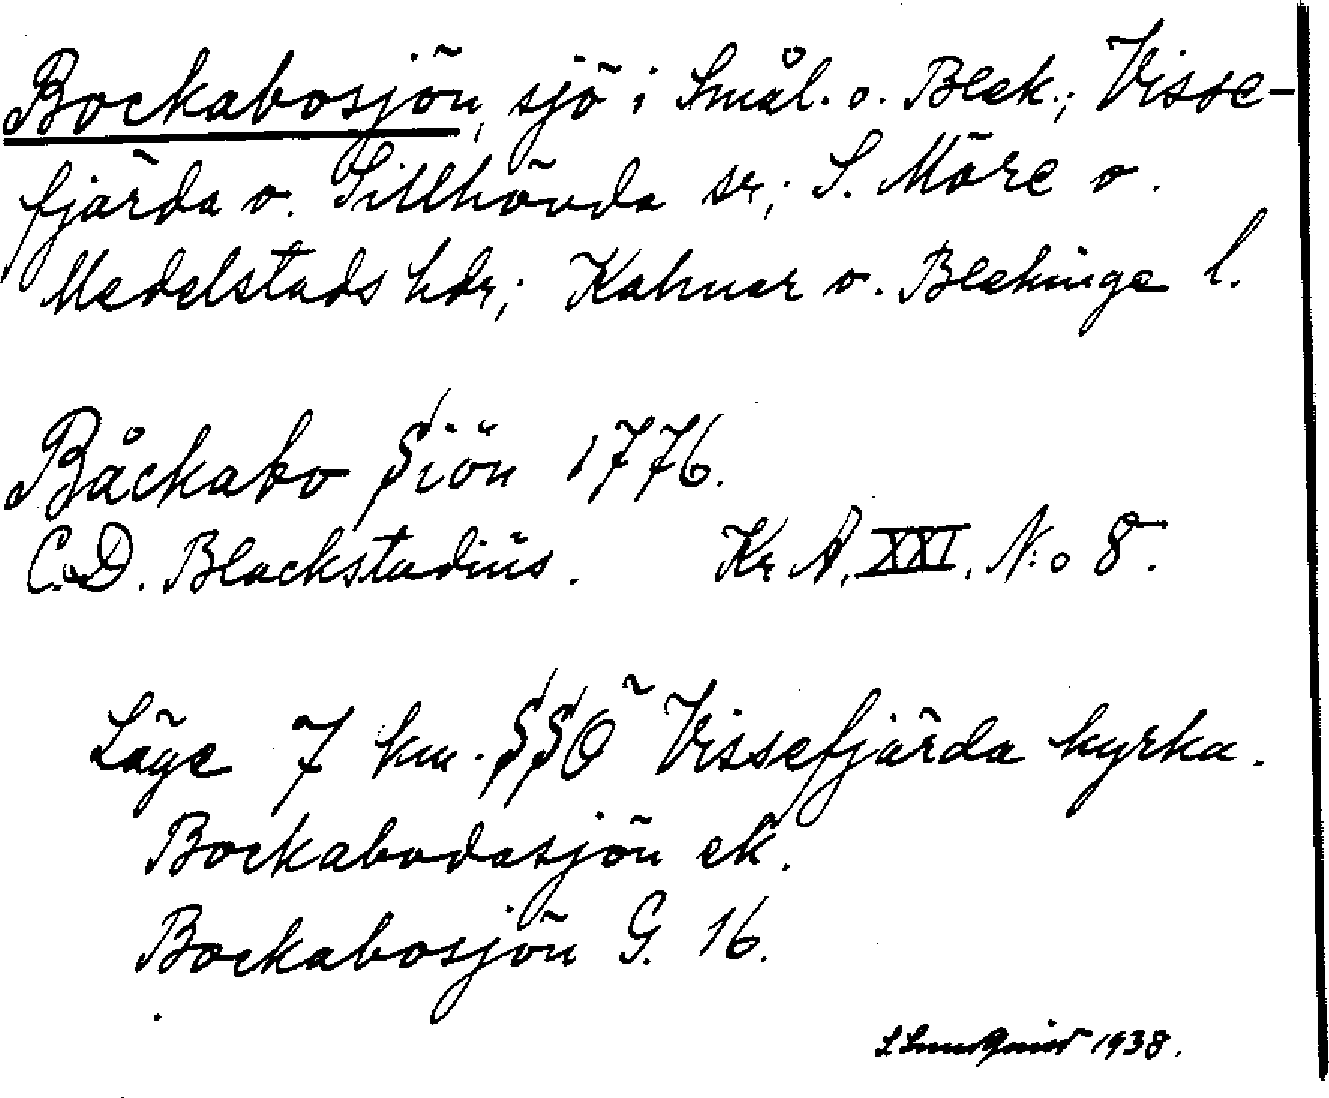 Bockabosjön, sjö i Smål. o. Blek.; Visse-
fjärda o. Tillhövda snr; S. Möre o.
Medelstads hdr; Kalmar o. Blekinge l.
Båckabo Siön 1776.
C.D. Blackstadius. Kr A. XXI. N:o 8.
Läge 7 km. SSÖ Vissefjärda kyrka.
Bockabodasjön ek.
Bockabosjön G. 16.
1938.